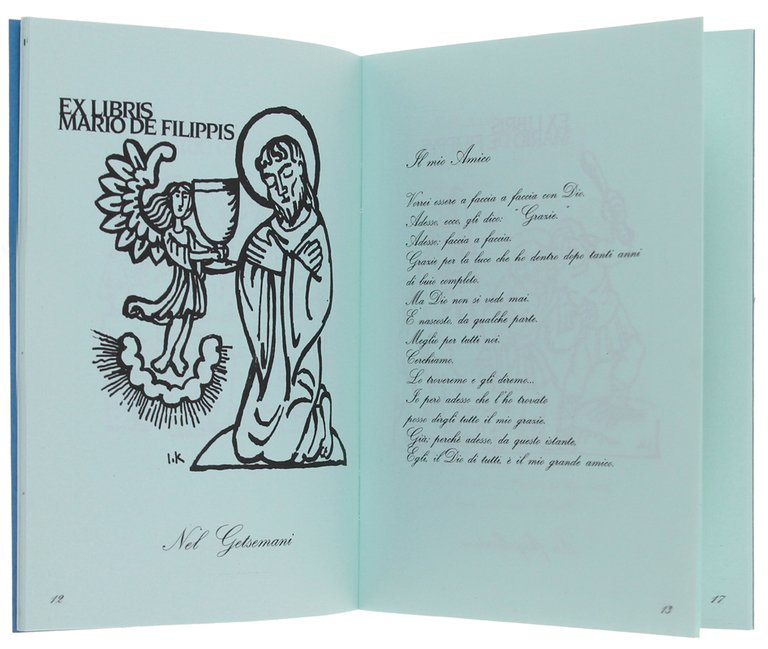 EX LIBRIS
MARIO DE FILIPPIS
I.K
Nel Getsemani
12
Il mio Amico
Vorrei essere a faccia a faccia con Dio.
Adesso, ecco, gli dico: "Grazie."
Adesso: faccia a faccia.
Grazie per la luce che ho dentro dopo tanti anni
di buio completo.
Ma Dio non si vede mai.
E nascosto, da qualche parte.
Meglio per tutti noi.
Cerchiamo.
Lo troveremo e gli diremo...
Io però adesso che l'ho trovato
posso dirgli tutto il mio grazie.
Già: perchè adesso, da questo istante,
Egli, il Dio di tutti, è il mio grande amico.
13
17